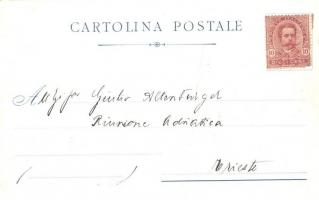 CARTOLINA POSTALE
10 10
Giulio Altenburger
Riunione Adriatica
Trieste